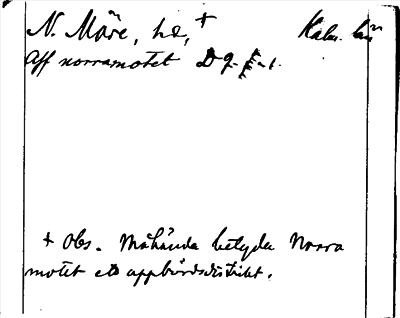 N. Möre, hd, + Kalm. län
Aff norramotet D 9.
+ Obs. Måhända betyder Norra
motet ett uppbördsdistrikt.